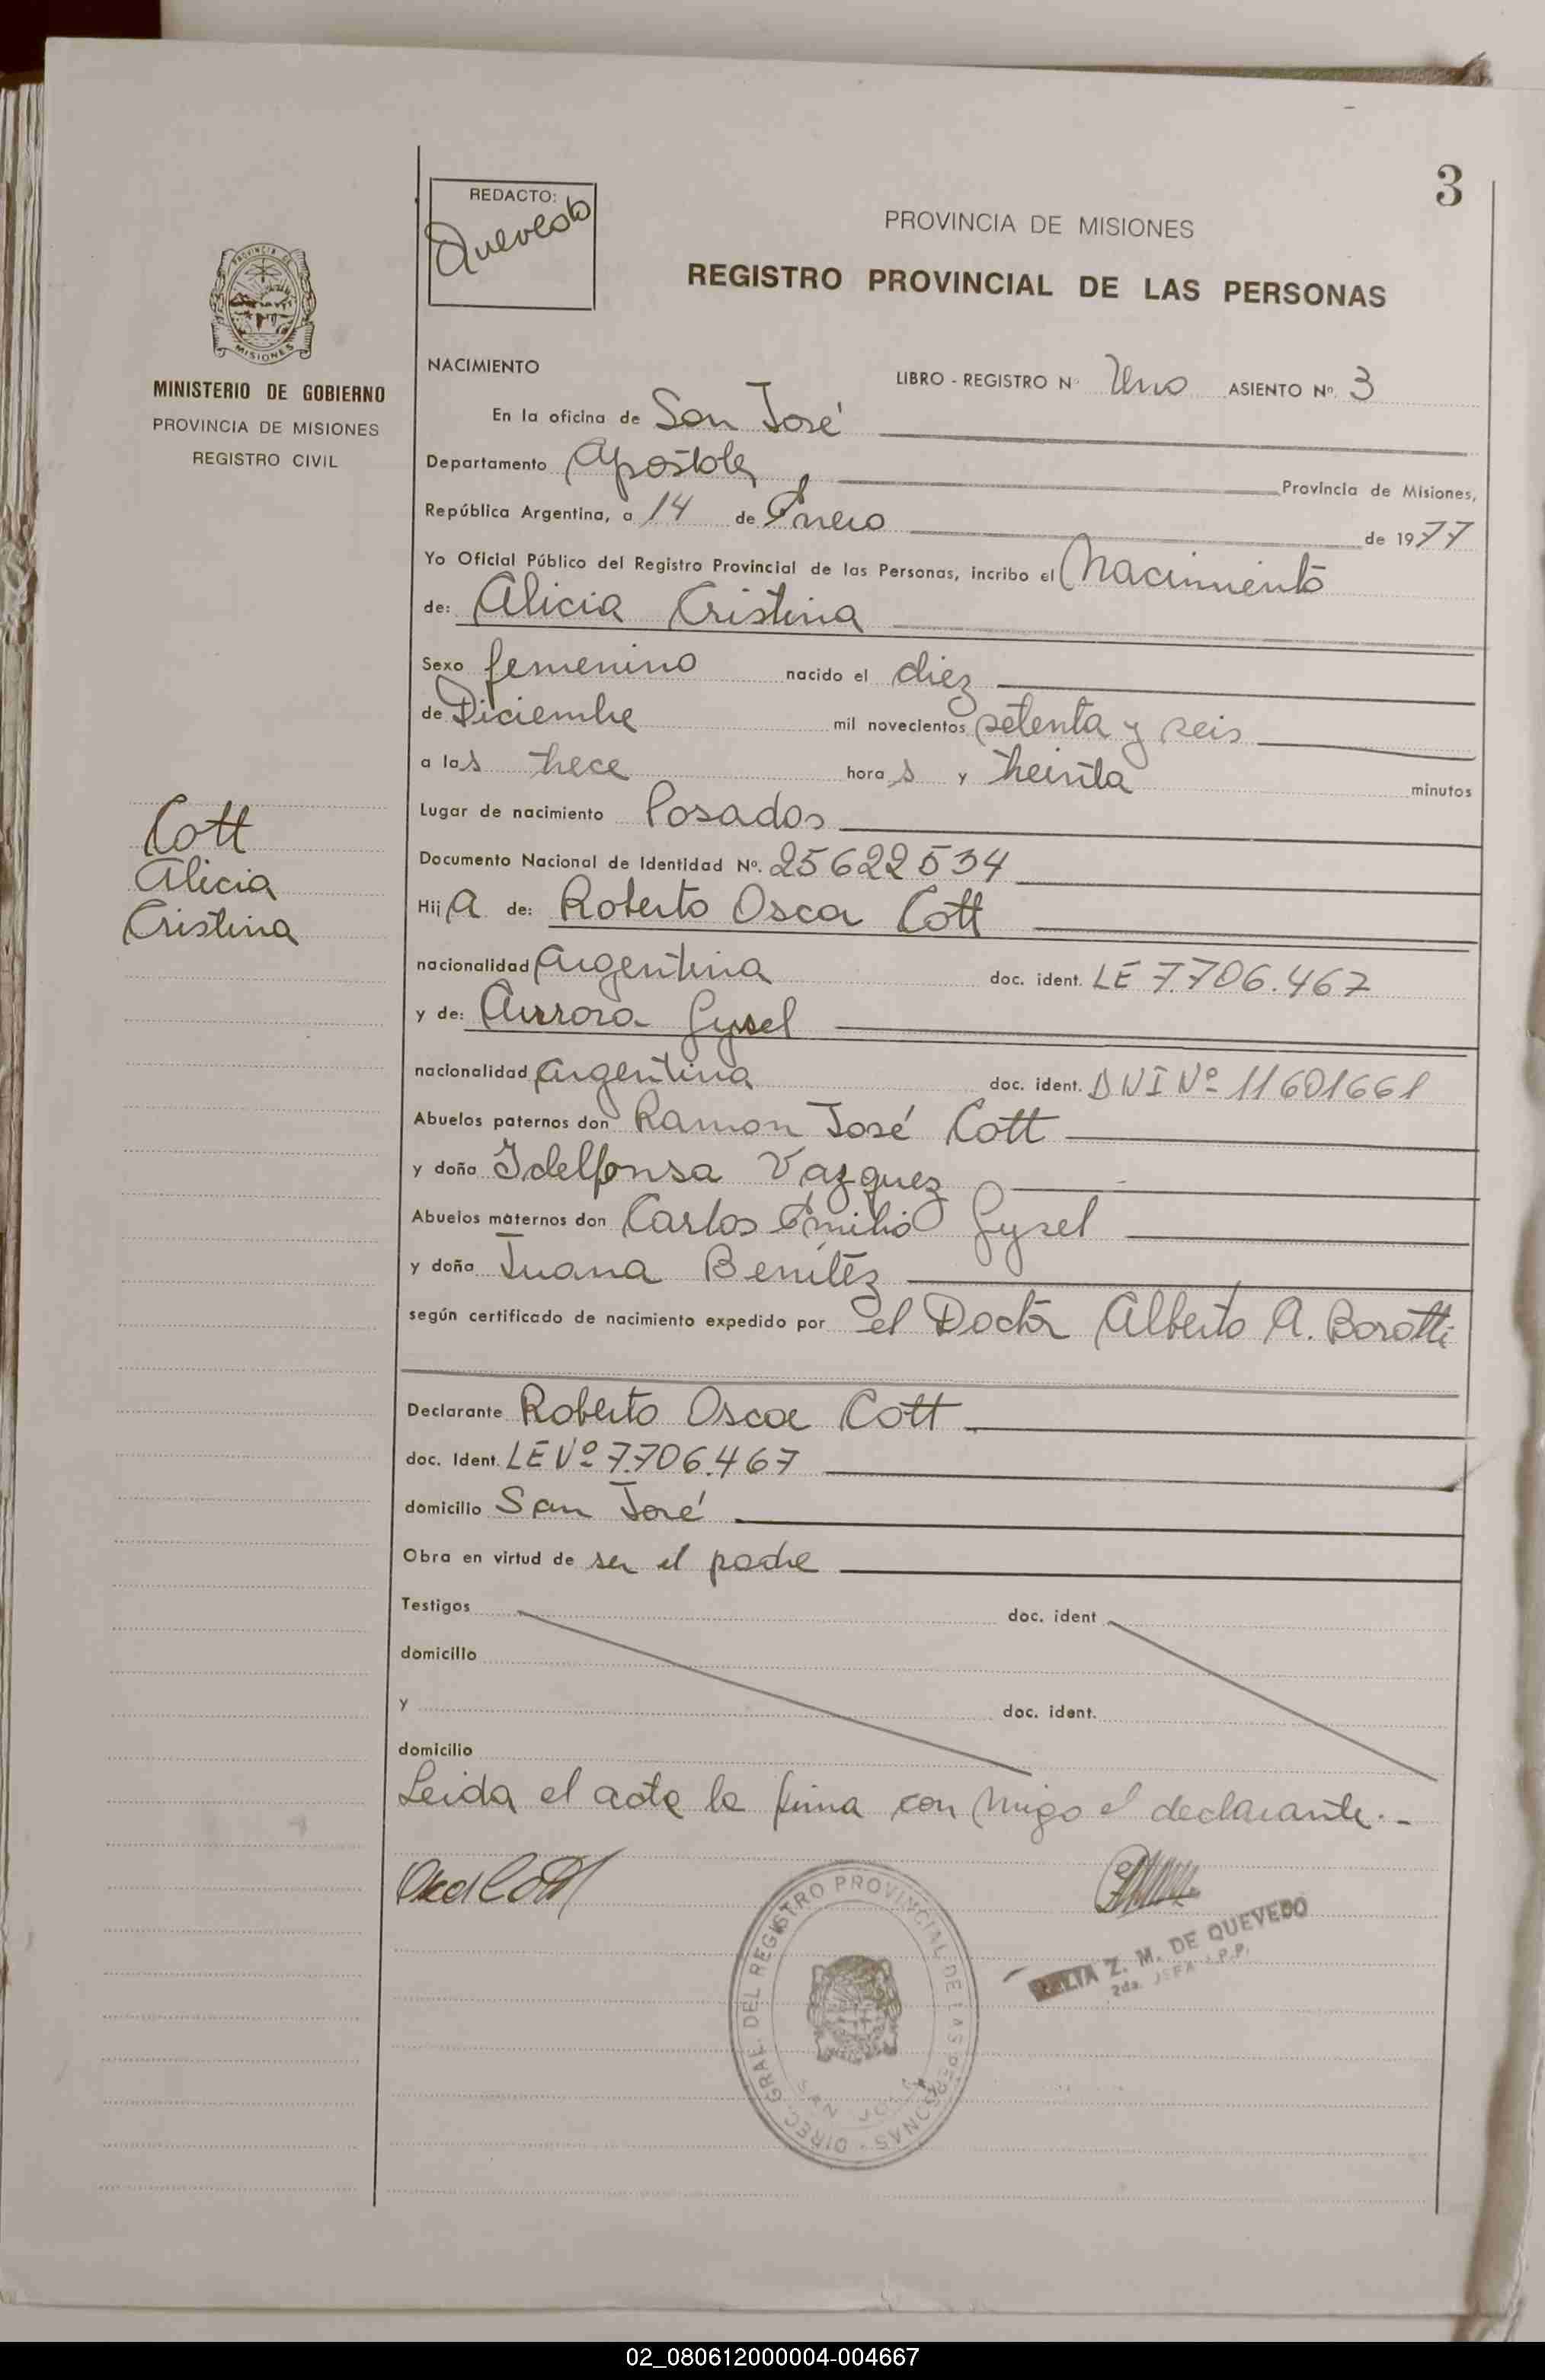 3
REDACTO:
Quevedo
PROVINCIA DE MISIONES
REGISTRO PROVINCIAL DE LAS PERSONAS
MISIONES
MINISTERIO DE GOBIERNO
PROVINCIA DE MISIONES
REGISTRO CIVIL
NACIMIENTO
LIBRO - REGISTRO Nº Uno ASIENTO Nº. 3
En la oficina de San José
Departamento Apostoles Provincia de Misiones,
República Argentina, a 14 de Enero de 1977
Yo Oficial Público del Registro Provincial de las Personas, incribo el Nacimiento
de: Alicia Cristina
Sexo femenino nacido el diez
de Diciembre mil novecientos setenta y seis
a las trece horas y treinta minutos
Lugar de nacimiento Posadas
Documento Nacional de Identidad Nº. 25622534
Cott
Alicia
Cristina
Hija de: Roberto Oscar Cott
nacionalidad Argentina doc. ident. LE 7.706.467
y de: Aurora Gysel
nacionalidad Argentina doc. ident. DNI Nº 11601661
Abuelos paternos don Ramon José Cott
y doña Idelfonsa Vazquez
Abuelos maternos don Carlos Emilio Gysel
y doña Juana Benítez
según certificado de nacimiento expedido por el Doctor Alberto A. Borotti
Declarante Roberto Oscar Cott
doc. Ident. LE Nº 7.706.467
domicilio San José
Obra en virtud de ser el padre
Testigos doc. ident
domicilio
y doc. ident.
domicilio
Leida el acta la firma con migo el declarante.-
DIREC. GRAL. DEL REGISTRO PROVINCIAL DE LAS PERSONAS
SAN JOSE
Z. M. DE QUEVEDO
02_080612000004-004667